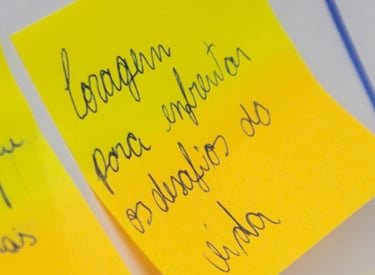 Coragem
para enfrentar
os desafios da
vida